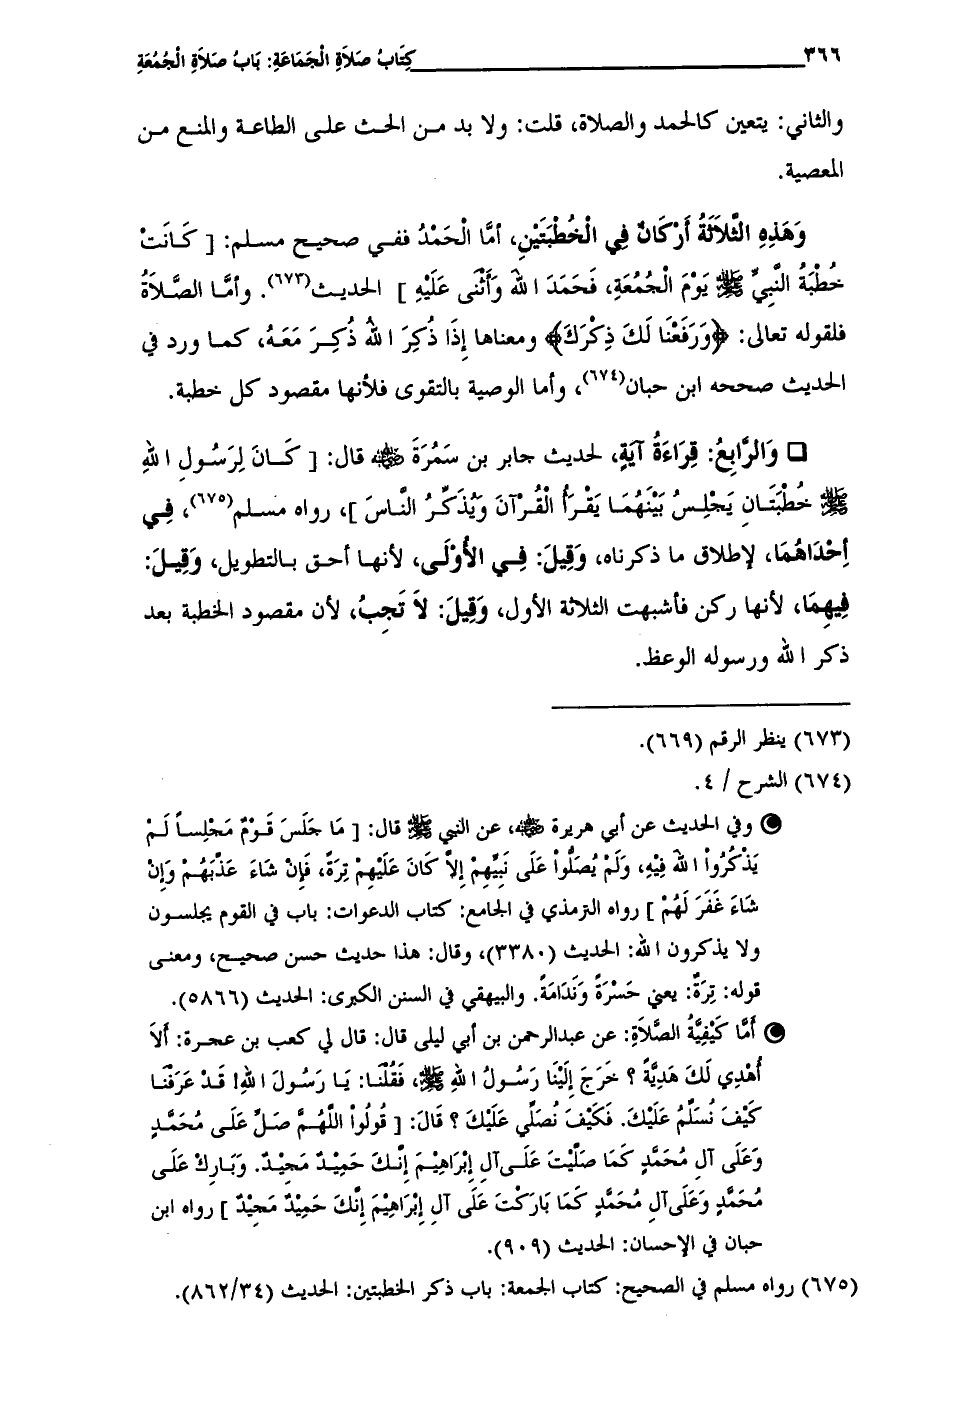 ٣٦٦ كِتَابُ صَلَاةِ الْجَمَاعَةِ: بَابُ صَلَاةِ الْجُمُعَةِ
والثاني: يتعين كالحمد والصلاة، قلت: ولا بد من الحث على الطاعة والمنع من
المعصية.
وَهَذِهِ الثَّلَاثَةُ أَرْكَانٌ فِي الْخُطْبَتَيْنِ، أمَّا الْحَمْدُ ففي صحيح مسلم: [ كَانَتْ
خُطْبَةُ النَّبِيِّ ﷺ يَوْمَ الْجُمُعَةِ، فَحَمَدَ اللهَ وَأَثْنَى عَلَيْهِ ] الحديث(٦٧٣). وأمَّا الصَّلَاةُ
فلقوله تعالى: ﴿وَرَفَعْنَا لَكَ ذِكْرَكَ﴾ ومعناها إِذَا ذُكِرَ اللهُ ذُكِرَ مَعَهُ، كما ورد في
الحديث صححه ابن حبان(٦٧٤)، وأما الوصية بالتقوى فلأنها مقصود كل خطبة.
❑ وَالرَّابِعُ: قِرَاءَةُ آيَةٍ، لحديث جابر بن سَمُرَةَ ﷺ قال: [ كَانَ لِرَسُولِ اللهِ
ﷺ خُطْبَتَانِ يَجْلِسُ بَيْنَهُمَا يَقْرَأُ الْقُرْآنَ وَيُذَكِّرُ النَّاسَ ]، رواه مسلم(٦٧٥)، فِي
إِحْدَاهُمَا، لإطلاق ما ذكرناه، وَقِيلَ: فِي الأُوْلَى، لأنها أحق بالتطويل، وَقِيلَ:
فِيهِمَا، لأنها ركن فأشبهت الثلاثة الأول، وَقِيلَ: لاَ تَجِبُ، لأن مقصود الخطبة بعد
ذكر الله ورسوله الوعظ.
(٦٧٣) ينظر الرقم (٦٦٩).
(٦٧٤) الشرح / ٤.
وفي الحديث عن أبي هريرة ﷺ، عن النبي ﷺ قال: [ مَا جَلَسَ قَوْمٌ مَجْلِساً لَمْ
يَذْكُرُواْ اللهَ فِيْهِ، وَلَمْ يُصَلُّواْ عَلَى نَبِيِّهِمْ إِلاَّ كَانَ عَلَيْهِمْ تِرَةً، فَإِنْ شَاءَ عَذَّبَهُمْ وَإِنْ
شَاءَ غَفَرَ لَهُمْ ] رواه الترمذي في الجامع: كتاب الدعوات: باب في القوم يجلسون
ولا يذكرون الله: الحديث (٣٣٨٠)، وقال: هذا حديث حسن صحيح، ومعنى
قوله: تِرَةٌ: يعني حَسْرَةً وَنَدَامَةً. والبيهقي في السنن الكبرى: الحديث (٥٨٦٦).
أَمَّا كَيْفِيَّةُ الصَّلَاةِ: عن عبدالرحمن بن أبي ليلى قال: قال لي كعب بن عجرة: أَلاَ
أُهْدِي لَكَ هَدِيَّةً ؟ خَرَجَ إِلَيْنَا رَسُولُ اللهِ ﷺ، فَقُلْنَا: يَا رَسُولَ اللهِ! قَدْ عَرَفْنَا
كَيْفَ نُسَلِّمُ عَلَيْكَ. فَكَيْفَ نُصَلِّي عَلَيْكَ ؟ قَالَ: [ قُولُواْ اللَّهُمَّ صَلِّ عَلَى مُحَمَّدٍ
وَعَلَى آلِ مُحَمَّدٍ كَمَا صَلَّيْتَ عَلَى آلِ إِبْرَاهِيْمَ إِنَّكَ حَمِيْدٌ مَجِيْدٌ. وَبَارِكْ عَلَى
مُحَمَّدٍ وَعَلَى آلِ مُحَمَّدٍ كَمَا بَارَكْتَ عَلَى آلِ إِبْرَاهِيْمَ إِنَّكَ حَمِيْدٌ مَجِيْدٌ ] رواه ابن
حبان في الإحسان: الحديث (٩٠٩).
(٦٧٥) رواه مسلم في الصحيح: كتاب الجمعة: باب ذكر الخطبتين: الحديث (٨٦٢/٣٤).